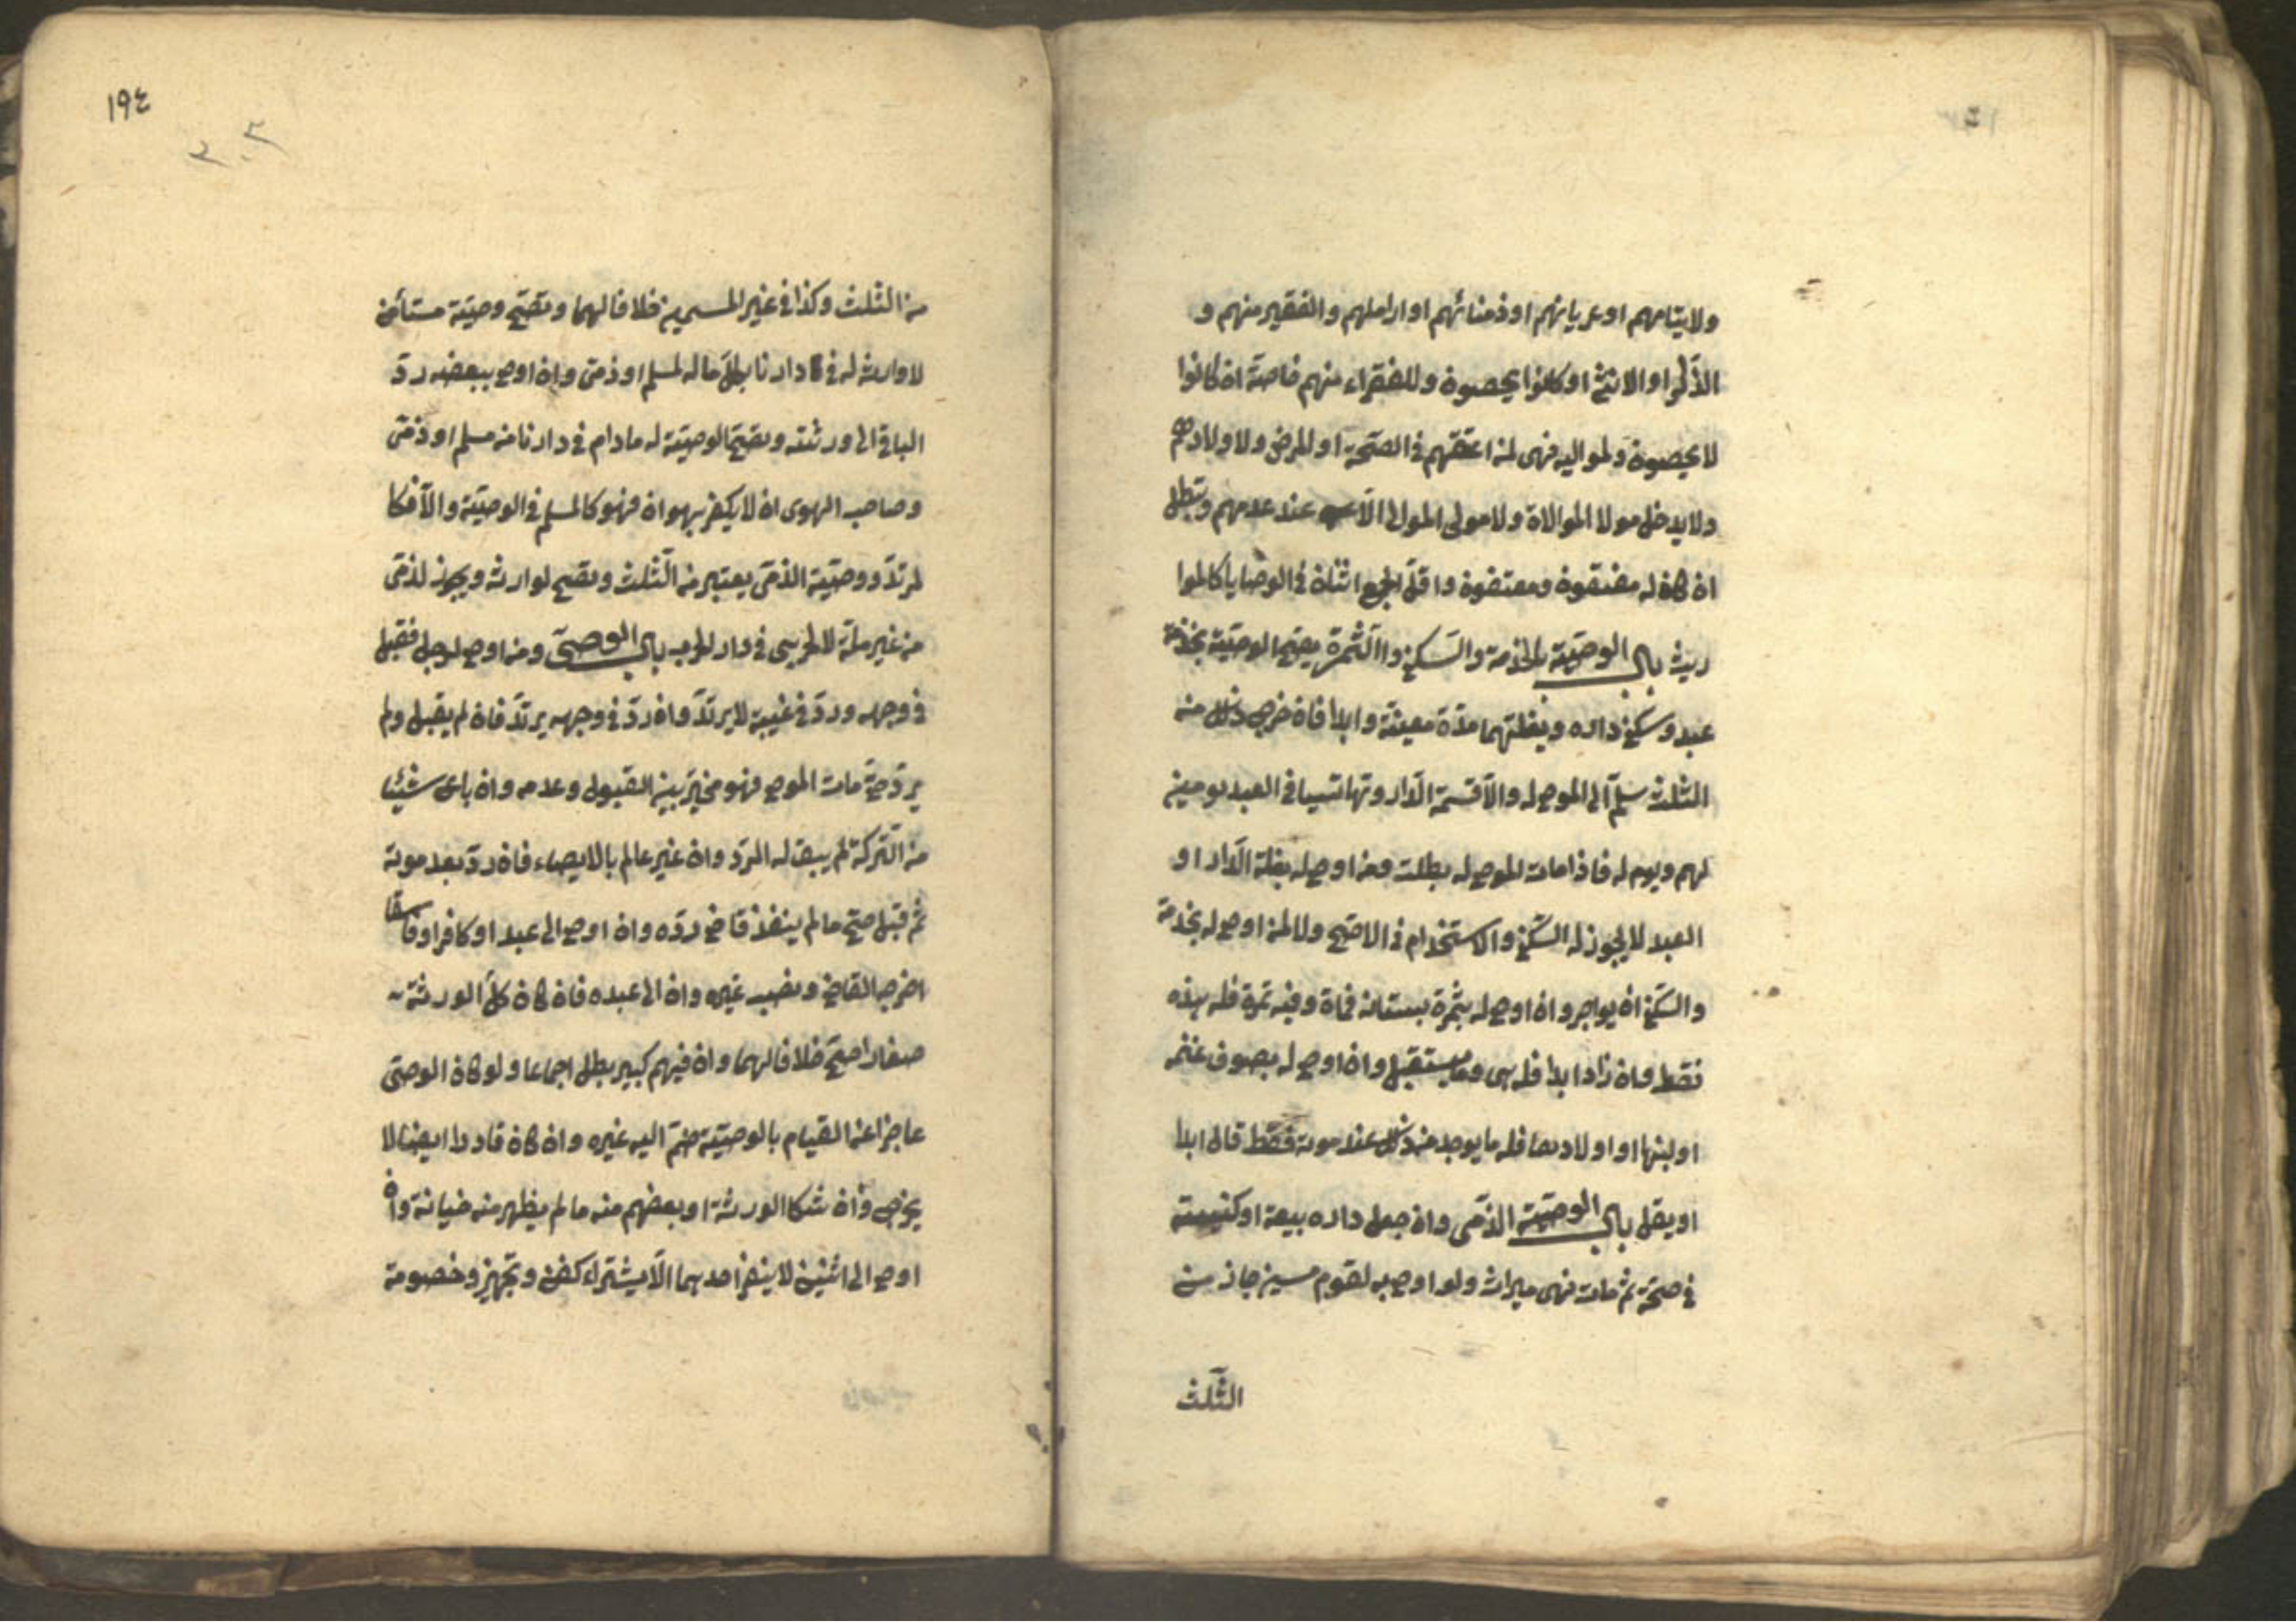 ولايتامهم او عميانهم او زمنائهم او اراملهم والفقير منهم و
الذكر او الانثى او كانوا يحصون وللفقراء منهم خاصة ان كانوا
لا يحصون ولمواليه فهى لمن اعتقهم فى الصحة او المرض ولاولادهم
ولا يدخل مولا الموالاة ولا مولى الموالى الا عند عدمهم وتبطل
ان كان له معتقون ومعتقون واقل الجمع اثنان فى الوصايا كالموا
ريث باب الوصية بالخدمة والسكنى والثمرة يصح الوصية بخدمة
عبد وسكنى داره وبغلتهما مدة معينة وابدا فان خرج ذلك من
الثلث سلم الى الموصى له والا قسمة الدار وتهايئا فى العبد يومين
لهم ويوم له فاذا مات الموصى له بطلت ومن اوصى له بغلة الدار او
العبد لا يجوز له السكنى والاستخدام فى الاصح ولا لمن اوصى له بخدمة
والسكنى ان يواجر وان اوصى له بثمرة بستانه فمات وفيه ثمرة فله هذه
فقط وان زاد ابدا فله هى وما يستقبل وان اوصى له بصوف غنمه
او لبنها او اولادها فله ما يوجد من ذلك عند موته فقط قال ابدا
او يقل باب الوصية الذمى وان جعل داره بيعة او كنيسة
فى صحة ثم مات فهى ميراث ولو اوصى به لقوم مسمين جاز من
الثلث
١٩٤
٣٠٣
من الثلث وكذا فى غير المسمين خلافا لهما وتصح وصية مستأمن
لا وارث له فى دارنا بكل ماله لمسلم او ذمى وان اوصى ببعضه رد
الباقى الى ورثته وتصح الوصية له مادام فى دارنا من مسلم او ذمى
وصاحب الهوى ان لا يكفر بهواه فهو كالمسلم فى الوصية والا فكا
لمرتد ووصية الذمى يعتبر من الثلث وتصح لوارث ويجوز لذمى
من غير ملة لا لحربى فى دار الحرب باب الوصى ومن اوصى لرجل فقبل
فى وجهه ورد فى غيبة لا يرتد وان رد فى وجهه يرتد فان لم يقبل ولم
يرد حتى مات الموصى فهو مخير بين القبول وعدمه وان باع شيئا
من التركة لم يبق له الرد وان غير عالم بالايصاء فان رد بعد موته
ثم قبل صح ما لم ينفذ قاض رده وان اوصى الى عبد او كافر او فاسقا
اخرجه القاضى ونصب غيره وان الى عبده فان كان كل الورثة
صغارا صح خلافا لهما وان فيهم كبير بطل اجماعا ولو كان الوصى
عاجزا عن القيام بالوصية ضم اليه غيره وان كان قادرا ايضا لا
يخرج وان شكا الورثة او بعضهم منه ما لم يظهر منه خيانة وان
اوصى الى اثنين لا ينفرد احدهما الا بشتراء كفن وتجهيز وخصومة